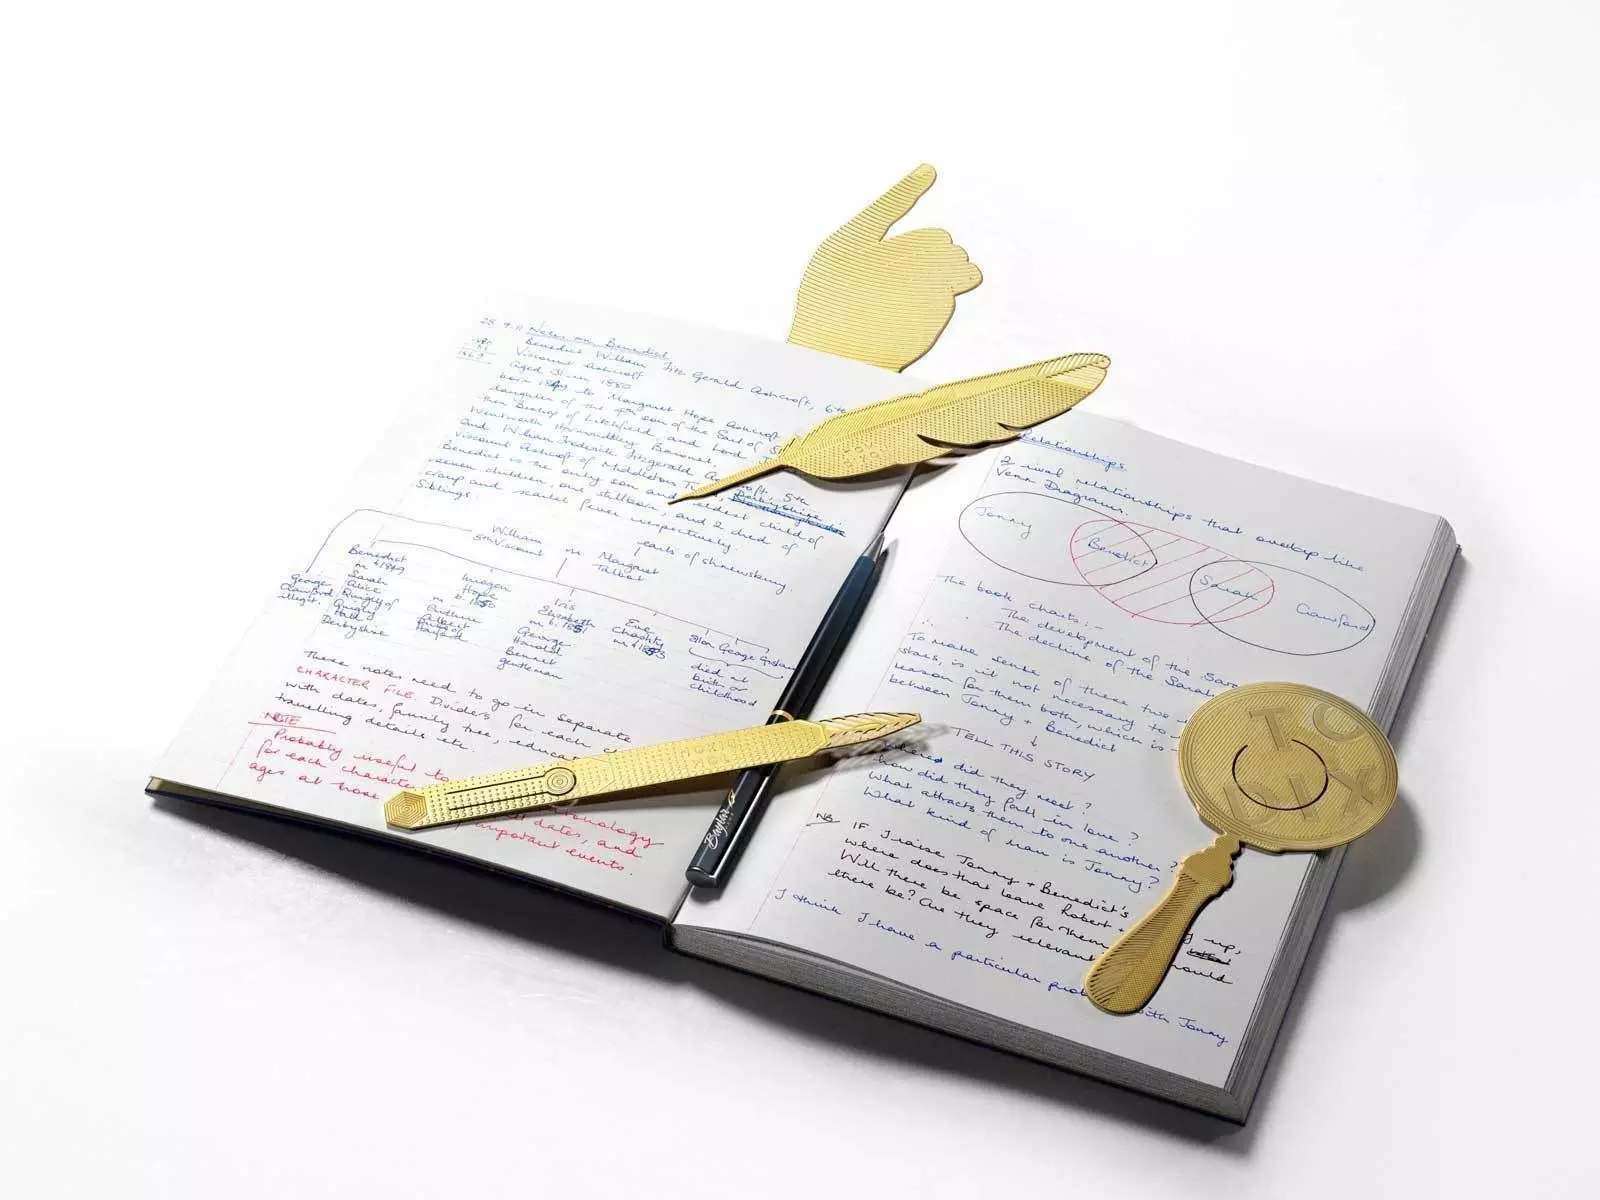 28.4.11 Notes on Benedict
Benedict William Fitz Gerald Ashcroft, 6th
Viscount Ashcroft
Aged 31 in 1880
born to Margaret Hope Ashcroft
daughter of the 4th son of the Earl of
then Bishop of Litchfield, and Lord
Wentworth Baronet.
And William Frederick Fitzgerald 5th
Viscount Ashcroft of Middleton Derbyshire
Benedict is the only son and eldest child of
seven children, one stillborn, and 2 died of
croup and scarlet fever respectively.
Siblings:
earls of shrewsbury
William m. Margaret
5th Viscount Talbot
Benedict
m 1879
Sarah
Alice
Quigly of
Quigley
Hall
Derbyshire
George
Crawford
illegit.
Imogen
Hope
m b. 1850
Arthur
Iris
Elizabeth
m b. 1851
George
Harold
Bennet
gentleman
Eve
Chastity
Alan George
died at
birth or
childhood
These notes need to go in separate
CHARACTER FILE. Dividers for each
with dates, family tree,
travelling details etc.
NOTE
Probably useful to
for each character
chronology
ages at those dates, and
important events.
Baylar
Relationships
2 rival relationships that overlap like
Venn Diagrams.
Jonny Benedict Sarah Crawford
The book charts:-
The development of the
The decline of the Sarah
To make sense of these two
is it not necessary to
reason for them both, which is
between Jonny + Benedict
↓
TELL THIS STORY
Where did they meet?
how did they fall in love?
What attracts them to one another?
What kind of man is Jonny?
NB IF I raise Jonny + Benedict's
where does that leave Robert + up,
Will there be space for them
there be? Are they relevant should
I think I have a particular with Jonny
TO
UIX